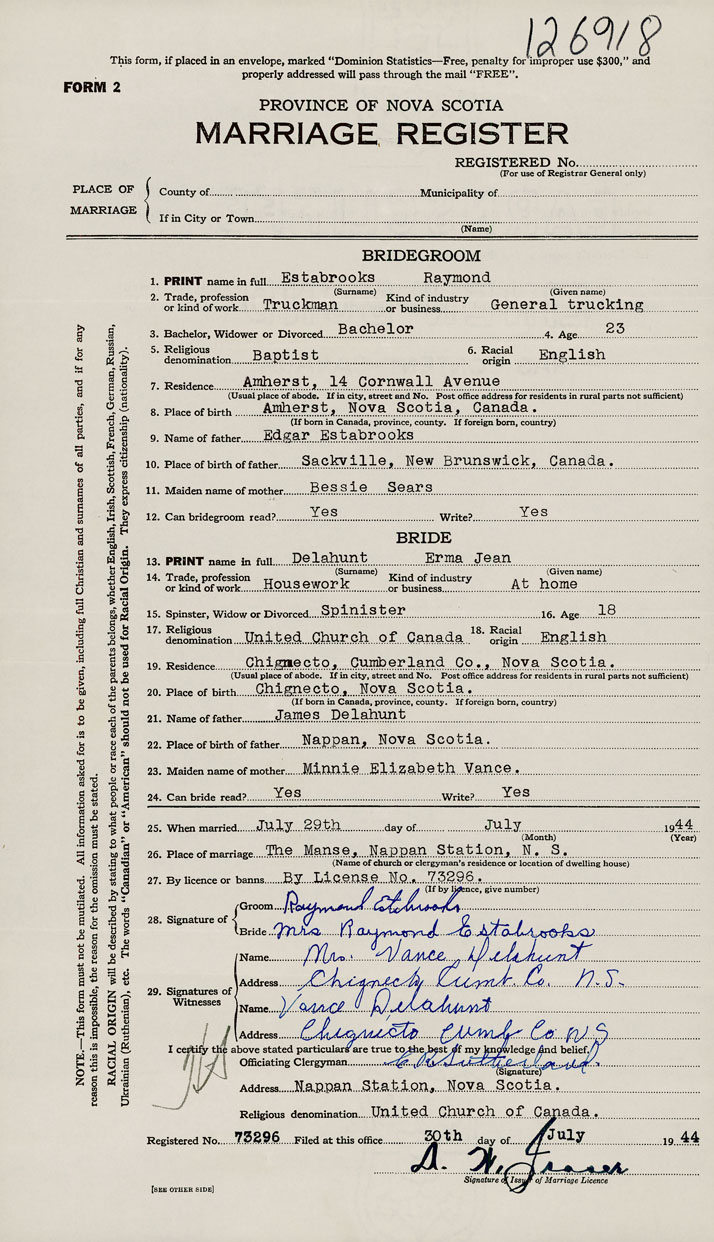 126918
This form, if placed in an envelope, marked "Dominion Statistics—Free, penalty for improper use $300," and
properly addressed will pass through the mail "FREE".
FORM 2
PROVINCE OF NOVA SCOTIA
MARRIAGE REGISTER
REGISTERED No.
(For use of Registrar General only)
PLACE OF MARRIAGE
County of Municipality of
If in City or Town
(Name)
BRIDEGROOM
1. PRINT name in full Estabrooks Raymond
(Surname) (Given name)
2. Trade, profession or kind of work Truckman Kind of industry or business General trucking
3. Bachelor, Widower or Divorced Bachelor 4. Age 23
5. Religious denomination Baptist 6. Racial origin English
7. Residence Amherst, 14 Cornwall Avenue
(Usual place of abode. If in city, street and No. Post office address for residents in rural parts not sufficient)
8. Place of birth Amherst, Nova Scotia, Canada.
(If born in Canada, province, county. If foreign born, country)
9. Name of father Edgar Estabrooks
10. Place of birth of father Sackville, New Brunswick, Canada.
11. Maiden name of mother Bessie Sears
12. Can bridegroom read? Yes Write? Yes
BRIDE
13. PRINT name in full Delahunt Erma Jean
(Surname) (Given name)
14. Trade, profession or kind of work Housework Kind of industry or business At home
15. Spinster, Widow or Divorced Spinister 16. Age 18
17. Religious denomination United Church of Canada 18. Racial origin English
19. Residence Chignecto, Cumberland Co., Nova Scotia.
(Usual place of abode. If in city, street and No. Post office address for residents in rural parts not sufficient)
20. Place of birth Chignecto, Nova Scotia.
(If born in Canada, province, county. If foreign born, country)
21. Name of father James Delahunt
22. Place of birth of father Nappan, Nova Scotia.
23. Maiden name of mother Minnie Elizabeth Vance.
24. Can bride read? Yes Write? Yes
25. When married July 29th day of July 1944
(Month) (Year)
26. Place of marriage The Manse, Nappan Station, N. S.
(Name of church or clergyman's residence or location of dwelling house)
27. By licence or banns By License No. 73296.
(If by licence, give number)
28. Signature of
Groom Raymond Estabrooks
Bride Mrs Raymond Estabrooks
29. Signatures of Witnesses
Name Mrs. Vance Delahunt
Address Chignecto Cumb. Co. N.S.
Name Vance Delahunt
Address Chignecto Cumb Co N S
I certify the above stated particulars are true to the best of my knowledge and belief.
Officiating Clergyman Sutherland
(Signature)
Address Nappan Station, Nova Scotia.
Religious denomination United Church of Canada.
Registered No. 73296 Filed at this office 30th day of July 1944
D. W. Fraser
Signature of Issuer of Marriage Licence
[SEE OTHER SIDE]
NOTE.—This form must not be mutilated. All information asked for is to be given, including full Christian and surnames of all parties, and if for any
reason this is impossible, the reason for the omission must be stated.
RACIAL ORIGIN will be described by stating to what people or race each of the parents belongs, whether English, Irish, Scottish, French, German, Russian,
Ukrainian (Ruthenian), etc. The words "Canadian" or "American" should not be used for Racial Origin. They express citizenship (nationality).